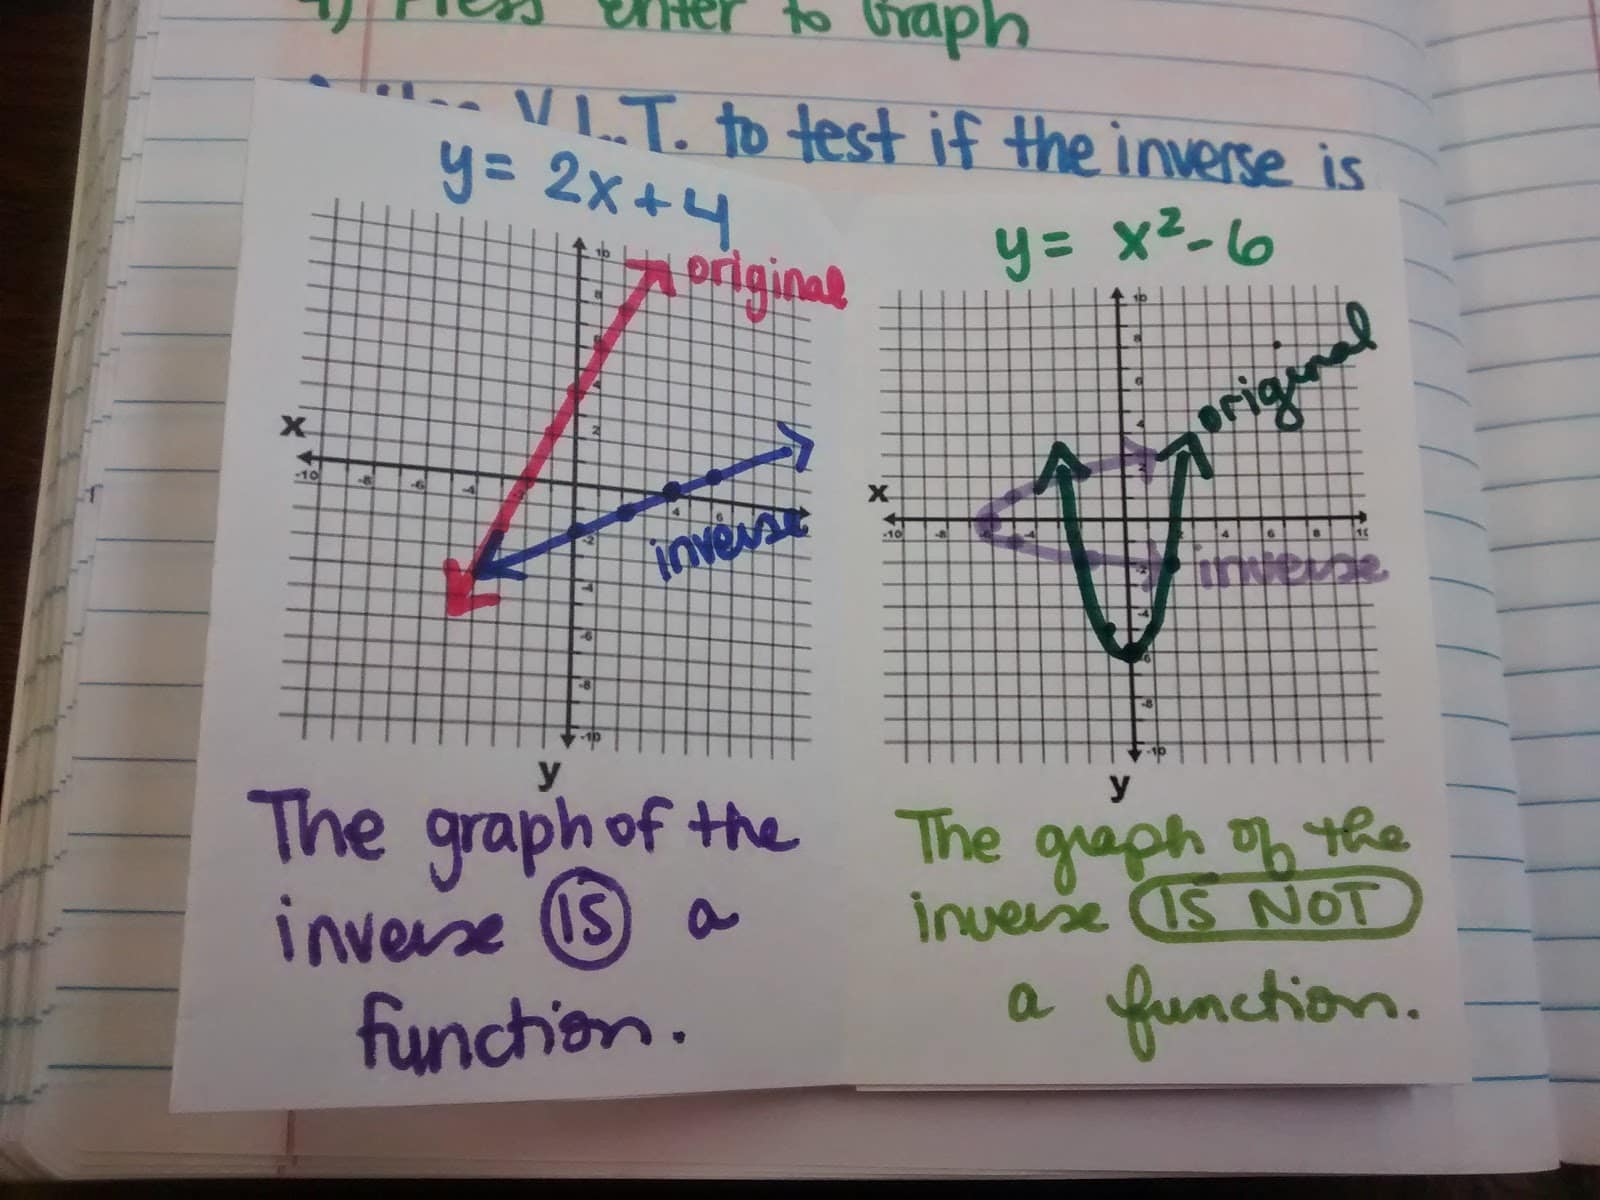 4) Press enter to Graph
V.L.T. to test if the inverse is
y= 2x+4
original
10
8
6
4
2
x
-10 -8 -6 -4 4 6
inverse
-2
-4
-6
-8
-10
y
The graph of the
inverse IS a
function.
y= x²-6
original
10
8
6
4
2
x
-10 -8 -4 4 6 8 10
inverse
-2
-4
-6
-8
-10
y
The graph of the
inverse IS NOT
a function.